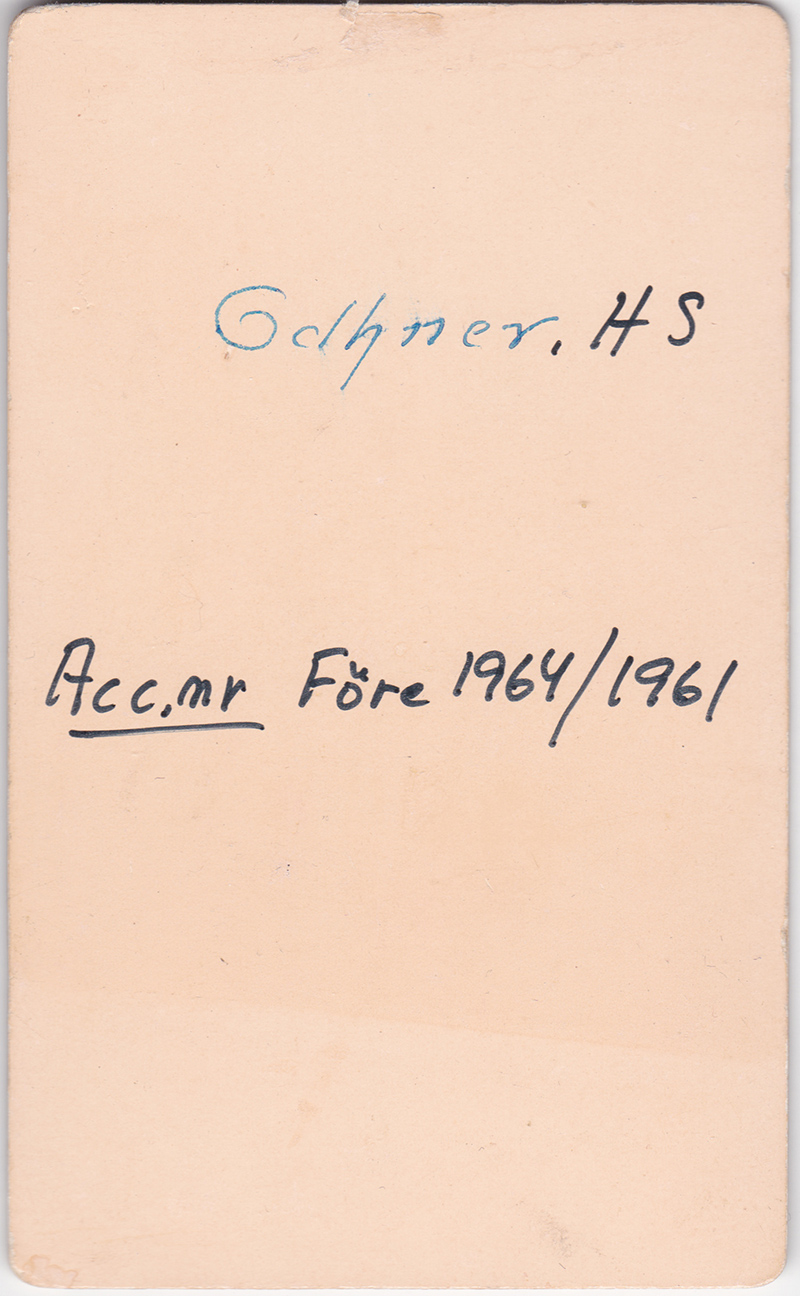 Odhner, HS
Acc.nr Före 1964/1961